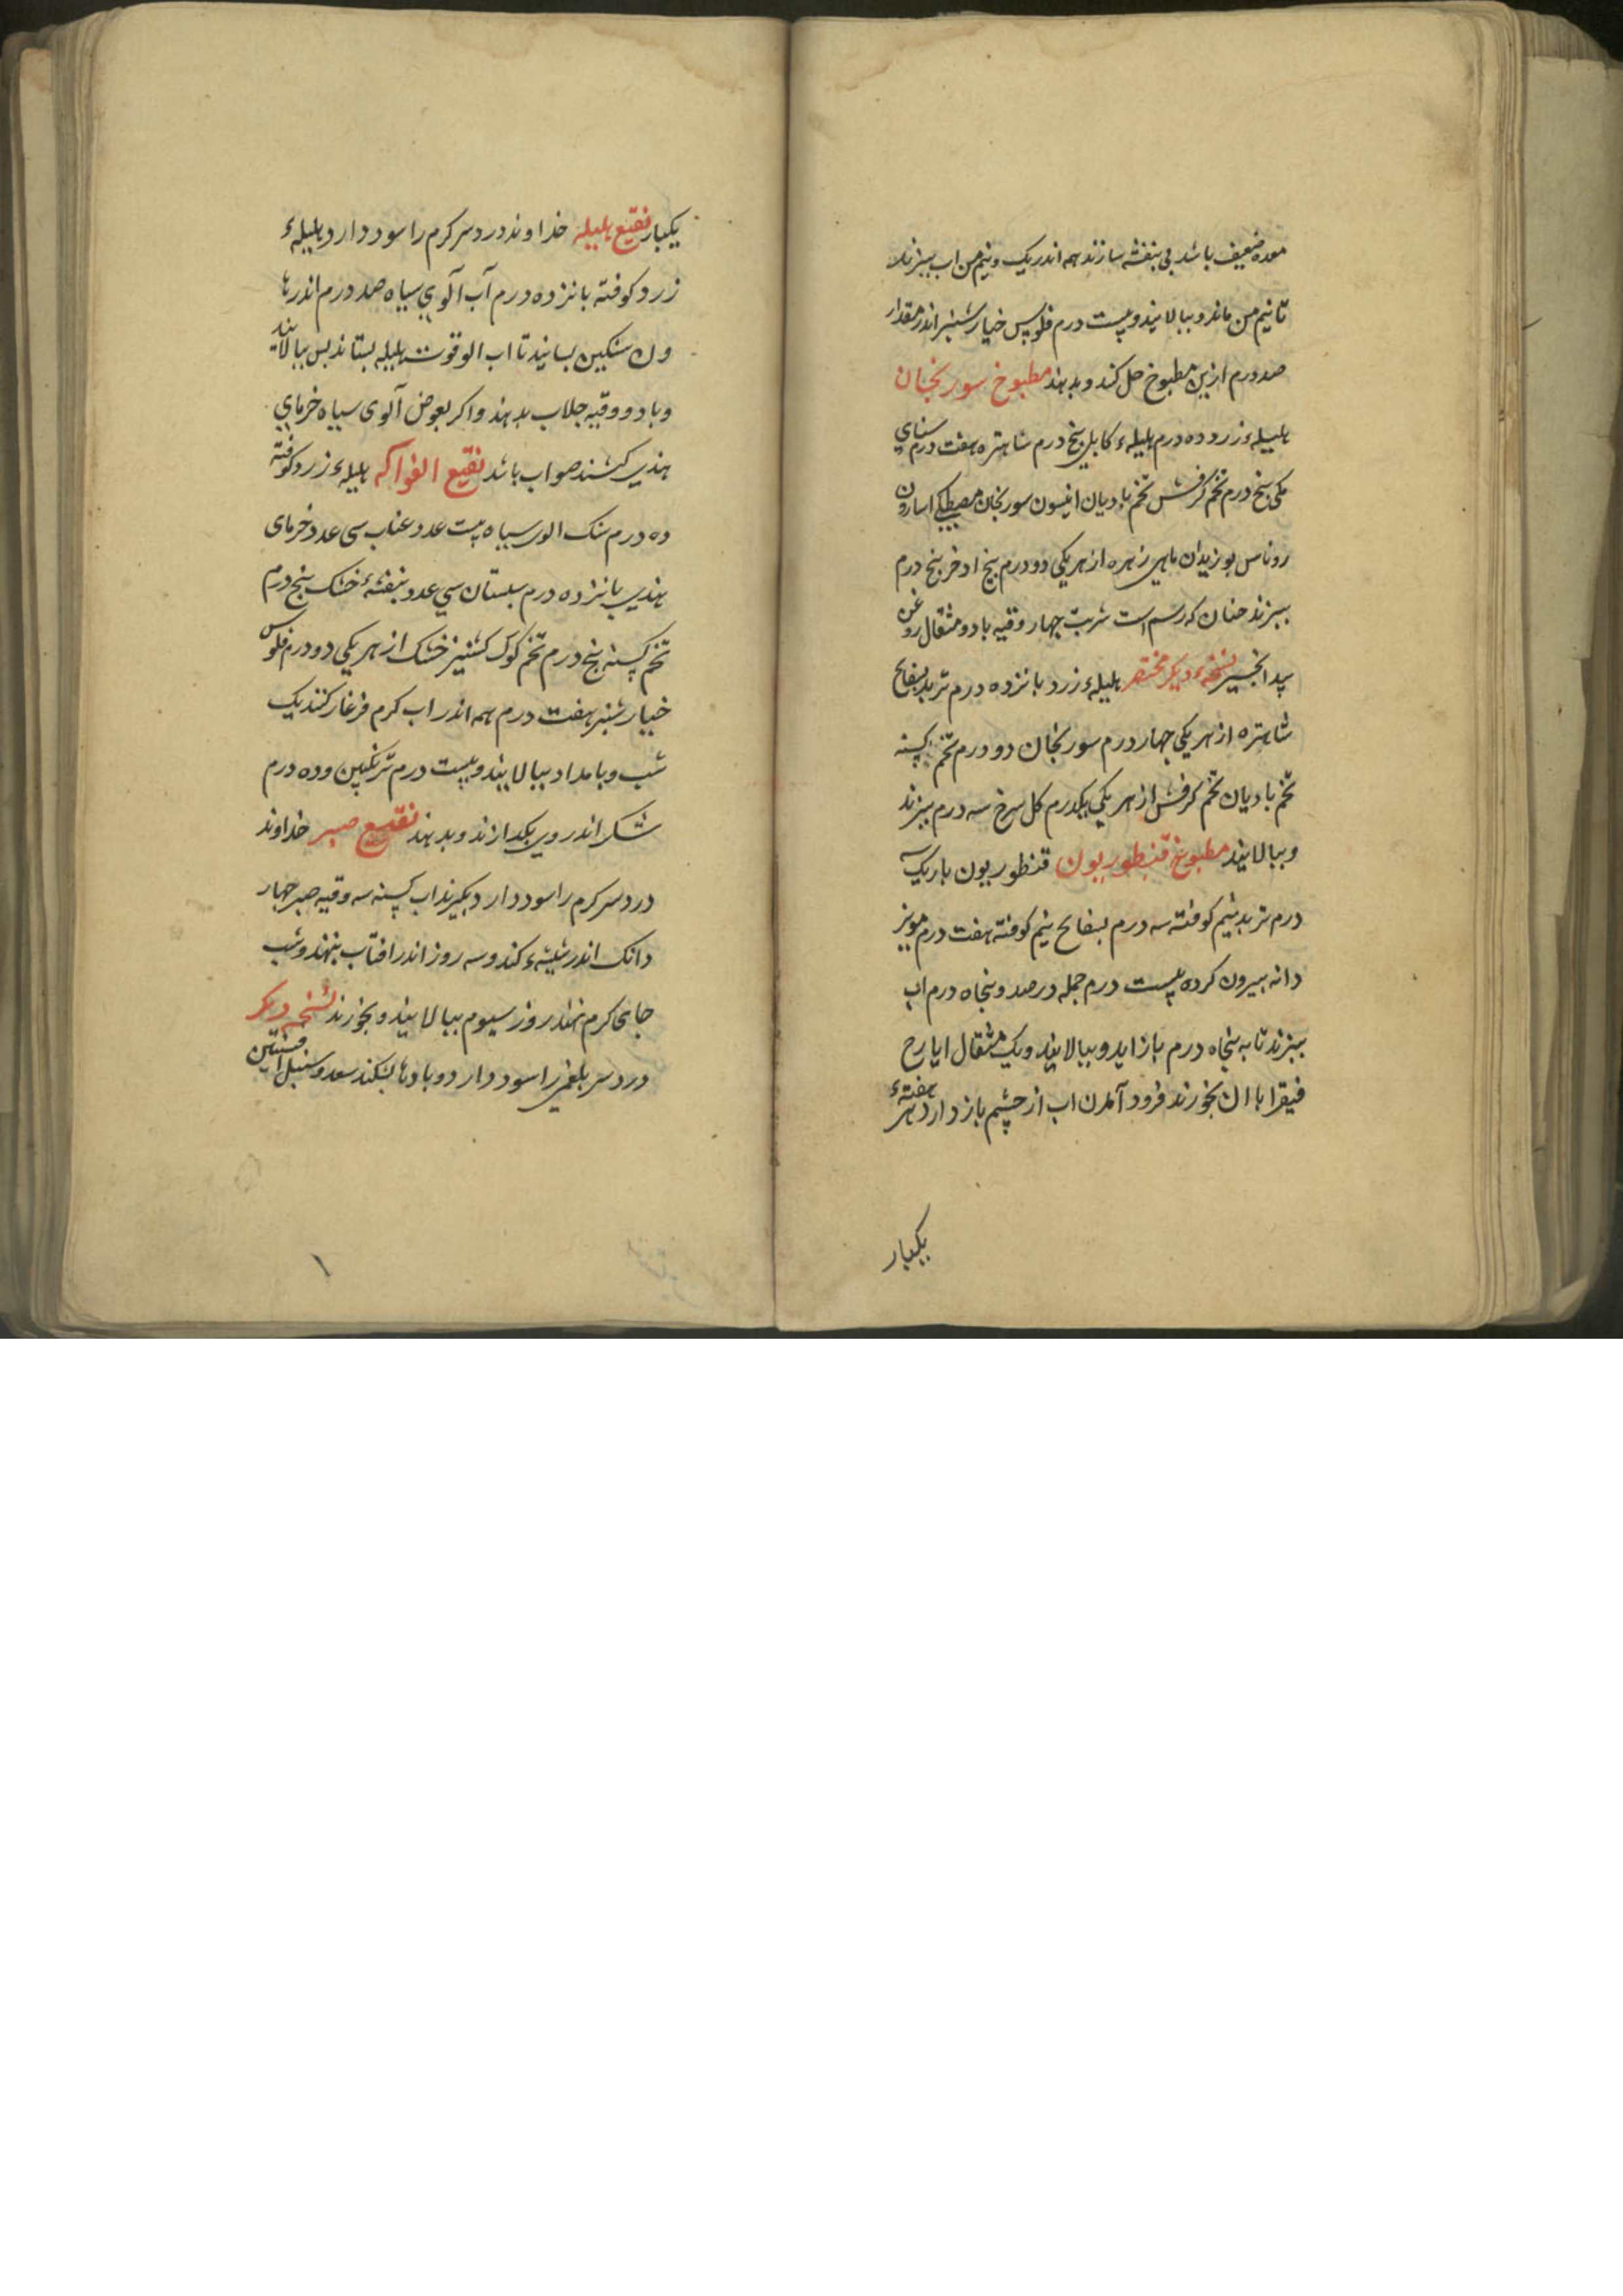 معده ضعیف باشد بی بنفشه سازند همه اندر یک و نیم من اب ببزند
تا نیم من ماند و ببالایند و بیست درم فلوس خیار شنبر اندر مقدار
صد درم ازین مطبوخ حل کند و بدهند مطبوخ سورنجان
هلیله زرد ده درم هلیلهء کابلی پنج درم شاهتره هفت درم سنای
مکی پنج درم تخم کرفس تخم بادیان انیسون سورنجان مصطکی اسارون
روناس بوزیدان ماهی زهره از هر یکی دو درم بیخ اذخر پنج درم
ببزند جنان که رسم است شربت جهار وقیه با دو مثقال روغن
بید انجیر نسخهء دیکر مختصر هلیلهء زرد بانزده درم تربد بسفایج
شاهتره از هر یکی جهار درم سورنجان دو درم تخم کسنه
تخم بادیان تخم کرفس از هر یکی یکدرم کل سرخ سه درم ببزند
و ببالایند مطبوخ قنطوریون قنطوریون باریک
درم تربد نیم کوفته سه درم بسفایج نیم کوفته هفت درم مویز
دانه بیرون کرده بیست درم جمله در صد و پنجاه درم اب
ببزند تا به پنجاه درم باز اید و ببالایند و یک مثقال ایارج
فیقرا با ان بخورند فرود آمدن اب از چشم باز دارد هر هفتهء
یکبار
یکبار نقیع هلیله خداوند درد سر کرم را سود دارد هلیلهء
زرد کوفته بانزده درم آب آلوی سیاه صد درم اندر ها
ون سنکین بسایند تا اب الو قوت هلیله بستاند بس ببالایند
و با دو وقیه جلاب بدهند و اکر بعوض آلوی سیاه خرمای
هندی کنند صواب باشد نقیع الفواکه هلیلهء زرد کوفته
ده درم سنک الوی سیاه بیست عدد عناب سی عدد خرمای
هندی بانزده درم سبستان سی عدد بنفشهء خشک پنج درم
تخم کسنه پنج درم تخم کوک کشنیز خشک از هر یکی دو درم فلوس
خیار شنبر هفت درم همه اندر اب کرم فرغار کنند یک
شب و بامداد ببالایند و بیست درم ترنکبین و ده درم
شکر اندر وی بکدازند و بدهند نقیع صبر خداوند
درد سر کرم را سود دارد بکیرند اب کسنه سه وقیه صبر جهار
دانک اندر شیشهء کند و سه روز اندر افتاب بنهند و شب
جای کرم نهند روز سیوم ببالایند و بخورند نسخه دیکر
درد سر بلغمی را سود دارد و بادها بشکند سعد و سنبل افسنتین
۱